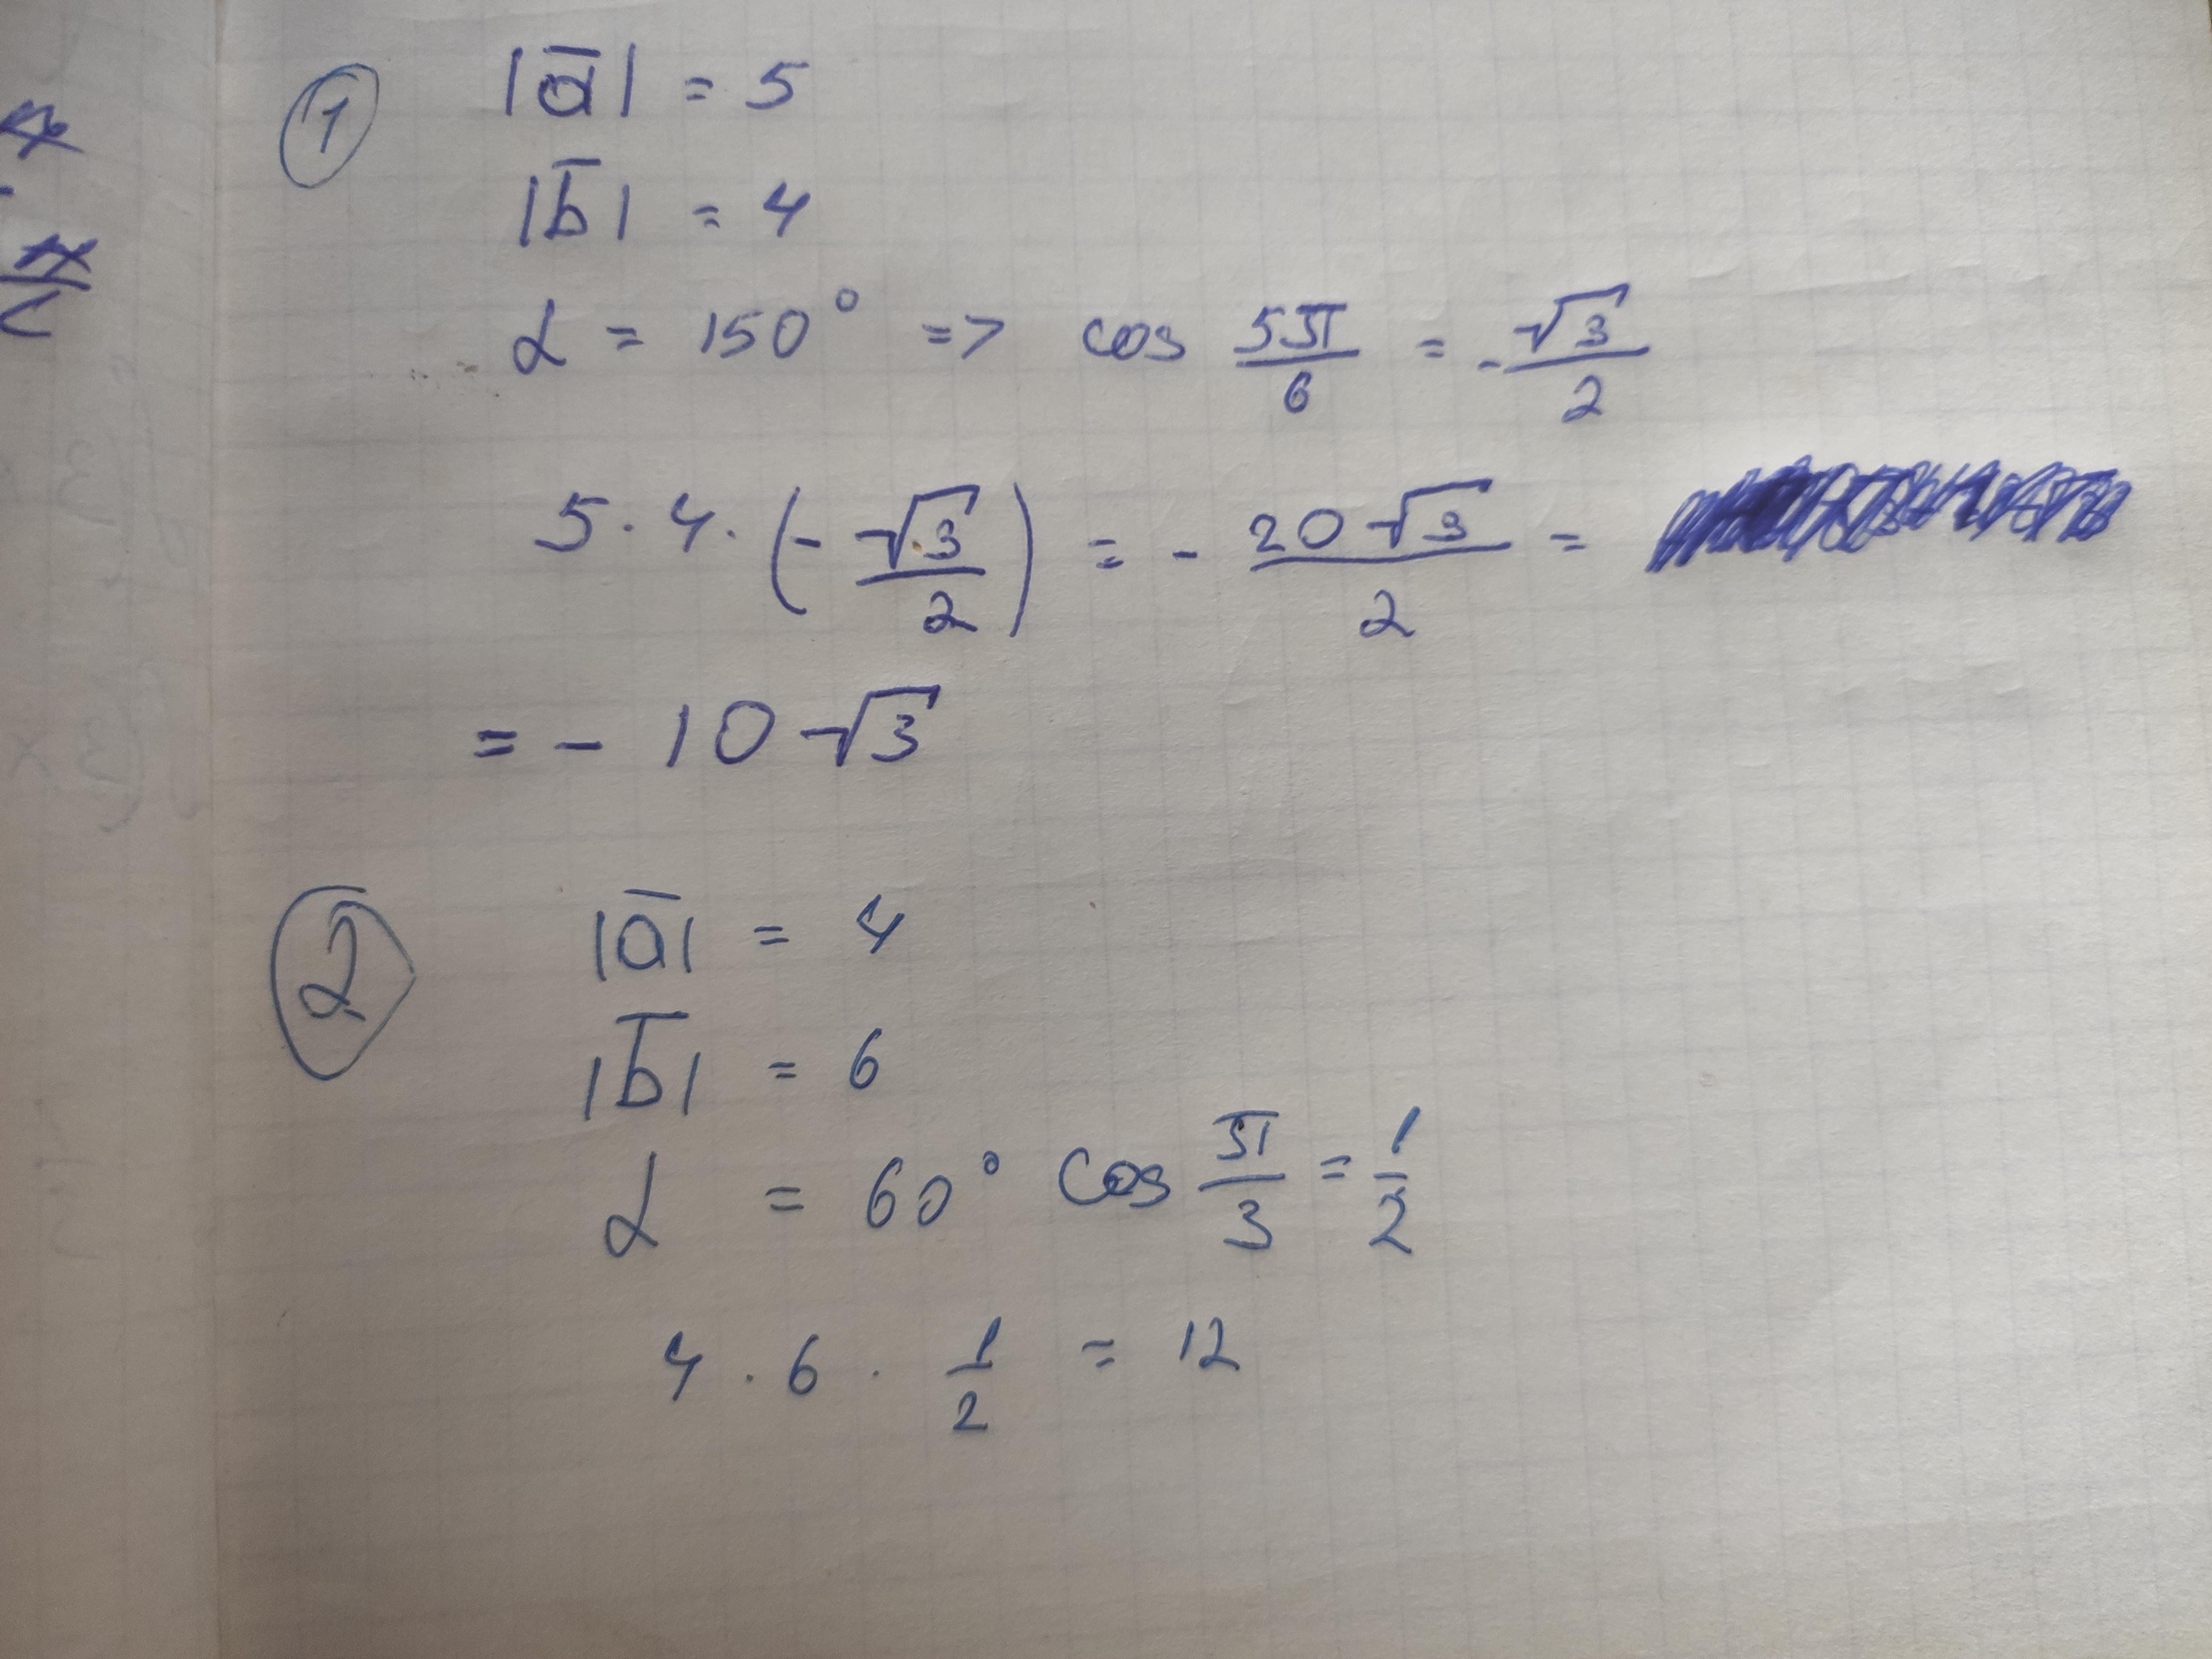 ① |a̅| = 5
|b̅| = 4
α = 150° => cos 5π/6 = -√3/2
5 · 4 · (-√3/2) = - 20√3/2 =
= - 10√3
② |a̅| = 4
|b̅| = 6
α = 60° cos π/3 = 1/2
4 · 6 · 1/2 = 12